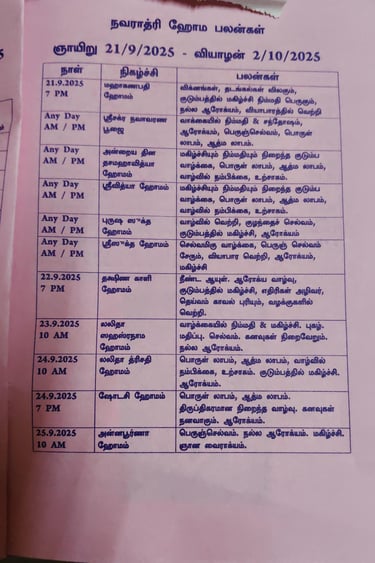 நவராத்ரி ஹோம பலன்கள்
ஞாயிறு 21/9/2025 - வியாழன் 2/10/2025
நாள் நிகழ்ச்சி பலன்கள்
21.9.2025 மஹாகணபதி விக்னங்கள், தடங்கல்கள் விலகும்,
7 PM ஹோமம் குடும்பத்தில் மகிழ்ச்சி நிம்மதி பெருகும்,
நல்ல ஆரோக்யம், வியாபாரத்தில் வெற்றி
Any Day ஸ்ரீசக்ர நவாவரண வாக்கையில் நிம்மதி & சந்தோஷம்,
AM / PM பூஜை ஆரோக்யம், பெருஞ்செல்வம், பொருள்
லாபம், ஆத்ம லாபம்.
Any Day அன்றைய தின மகிழ்ச்சியும் நிம்மதியும் நிறைந்த குடும்ப
AM / PM தசமஹாவித்யா வாழ்க்கை, பொருள் லாபம், ஆத்ம லாபம்,
ஹோமம் வாழ்வில் நம்பிக்கை, உற்சாகம்.
Any Day ஸ்ரீவித்யா ஹோமம் மகிழ்ச்சியும் நிம்மதியும் நிறைந்த குடும்ப
AM / PM வாழ்க்கை, பொருள் லாபம், ஆத்ம லாபம்,
வாழ்வில் நம்பிக்கை, உற்சாகம்.
Any Day புருஷ ஸுக்த வாழ்வில் வெற்றி, குழந்தைச் செல்வம்,
AM / PM ஹோமம் குடும்பத்தில் மகிழ்ச்சி, ஆரோக்யம்
Any Day ஸ்ரீஸுக்த ஹோமம் செல்வமிகு வாழ்க்கை, பெருஞ் செல்வம்
AM / PM சேரும், வியாபார வெற்றி, ஆரோக்யம்,
மகிழ்ச்சி
22.9.2025 தக்ஷிண காளி நீண்ட ஆயுள். ஆரோக்ய வாழ்வு,
7 PM ஹோமம் குடும்பத்தில் மகிழ்ச்சி, எதிரிகள் அழிவர்,
தெய்வம் காவல் புரியும், வழக்குகளில்
வெற்றி.
23.9.2025 லலிதா வாழ்க்கையில் நிம்மதி & மகிழ்ச்சி. புகழ்.
10 AM ஸஹஸ்ரநாம மதிப்பு. செல்வம். கனவுகள் நிறைவேறும்.
ஹோமம் நல்ல ஆரோக்யம்.
24.9.2025 லலிதா த்ரிசதி பொருள் லாபம், ஆத்ம லாபம், வாழ்வில்
10 AM ஹோமம் நம்பிக்கை, உற்சாகம். குடும்பத்தில் மகிழ்ச்சி.
ஆரோக்யம்.
24.9.2025 ஷோடசி ஹோமம் பொருள் லாபம், ஆத்ம லாபம்.
7 PM திருப்திகரமான நிறைந்த வாழ்வு. கனவுகள்
நனவாகும். ஆரோக்யம்.
25.9.2025 அன்னபூர்ணா பெருஞ்செல்வம். நல்ல ஆரோக்யம். மகிழ்ச்சி.
10 AM ஹோமம் ஞான வைராக்யம்.